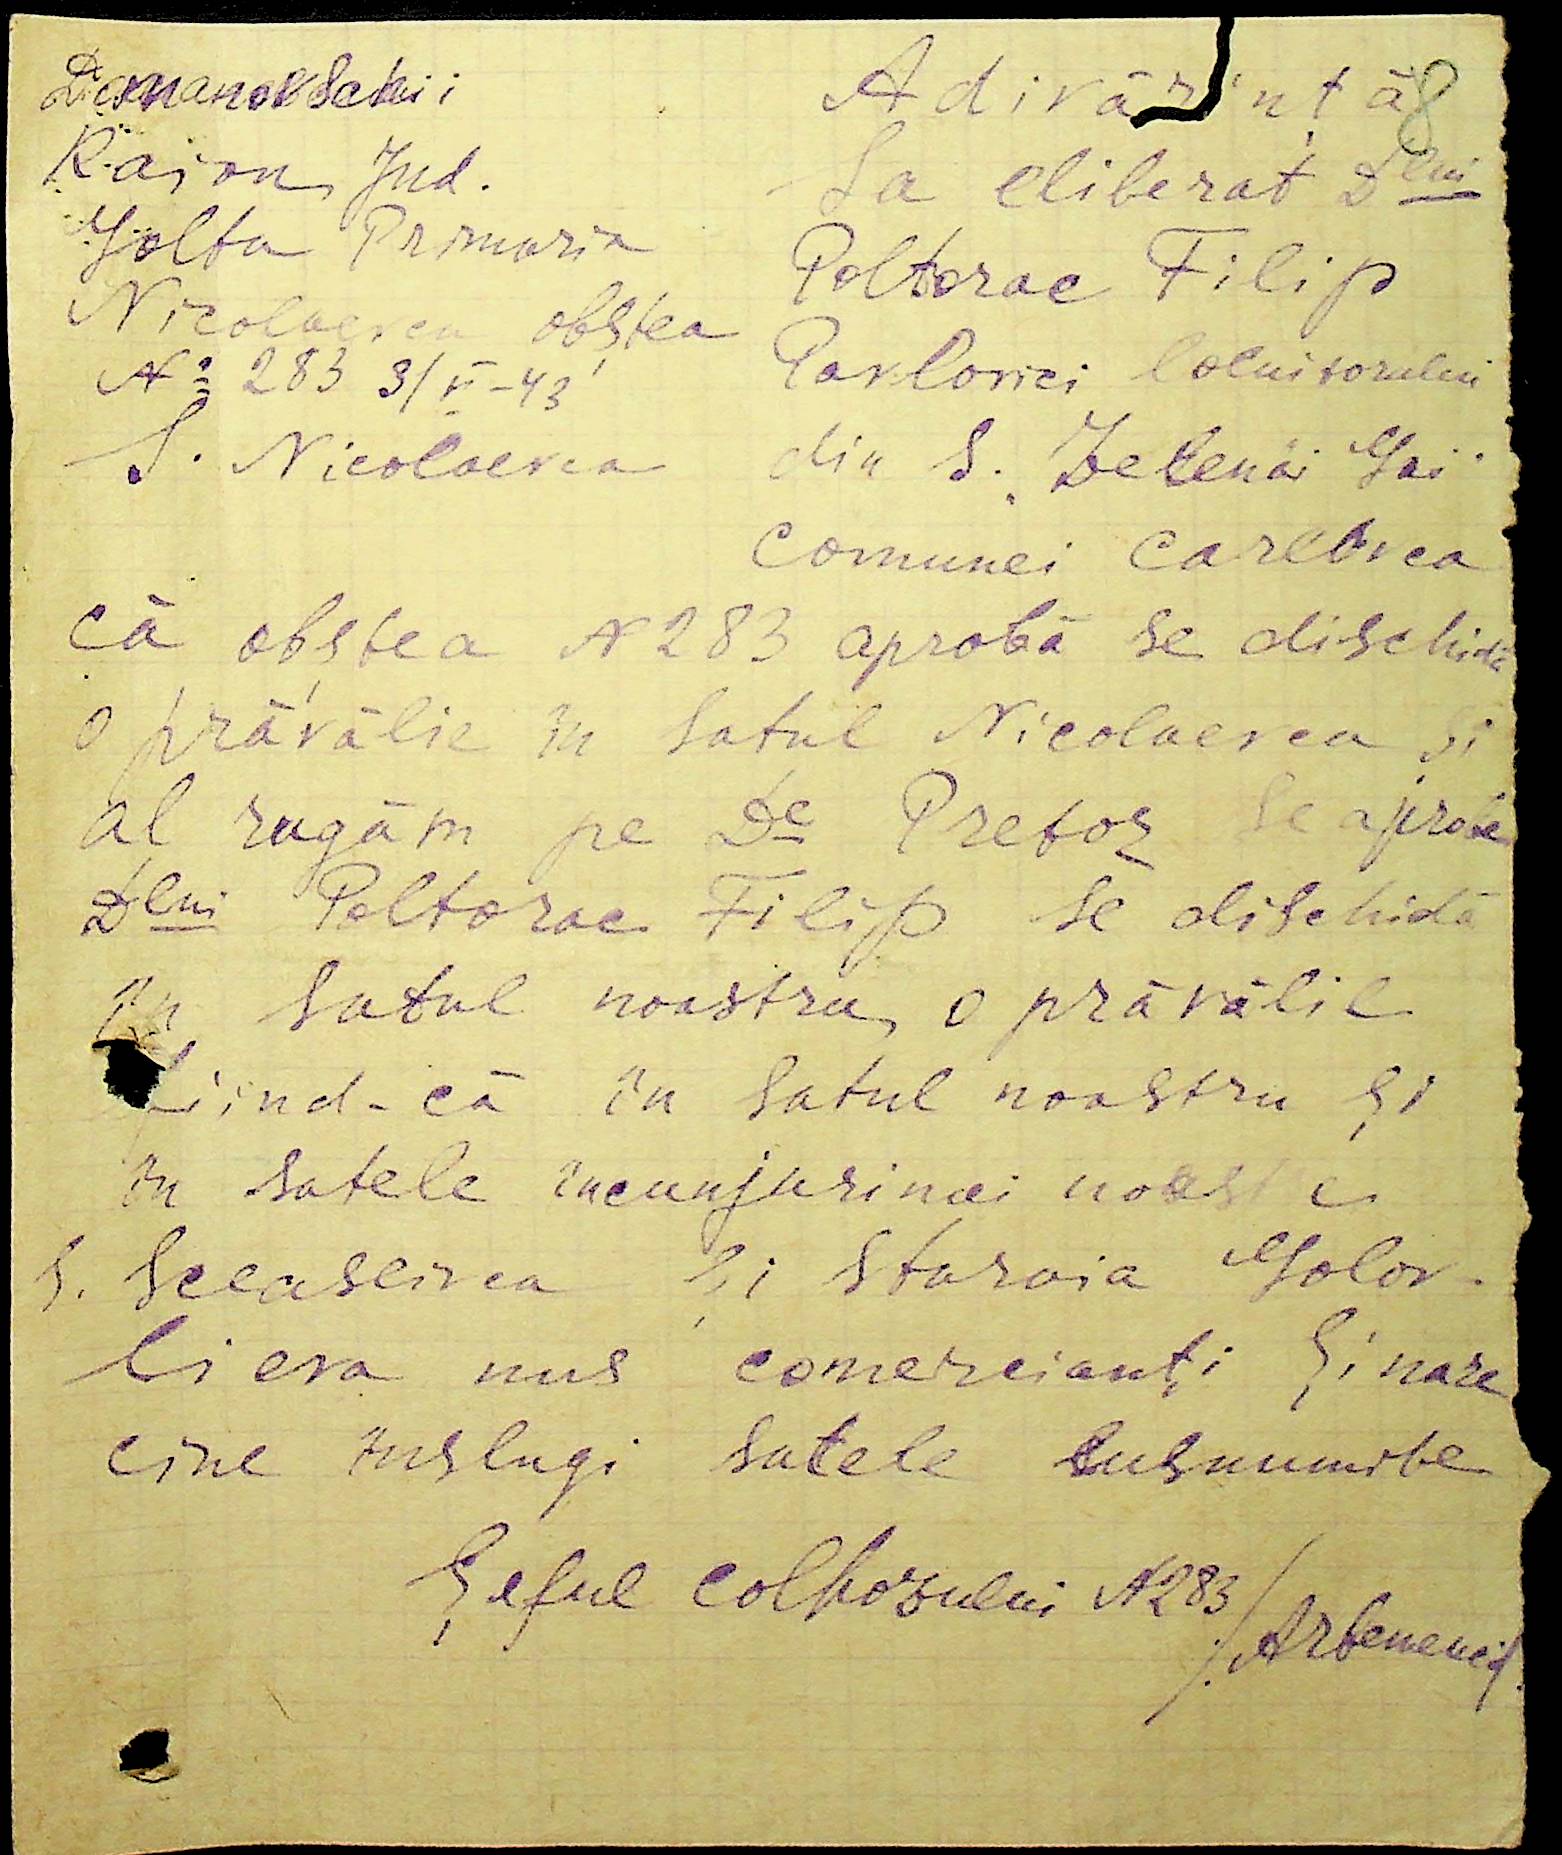 Domanovschii
Raion, Jud.
Golta Primaria
Nicolaevca obștea
No 283 3/VI-43
S. Nicolaevca
Adivărință
8
Sa eliberat Dlui
Poltorac Filip
Pavlovici locuitorului
din S. Zelenâi Gai
comunei
că obștea N 283 aprobă se dischidă
o prăvălie în satul Nicolaevca și
al rugăm pe De Pretor se aprobe
Dlui Poltorac Filip se dischidă
în satul noastru, o prăvălie
fiind-că în satul noastru și
în satele încunjurinei noaste
S. și Staraia Golov-
lieva nus comercianți și nare
cine înslugi satele susnumite
Șeful colhozului N283